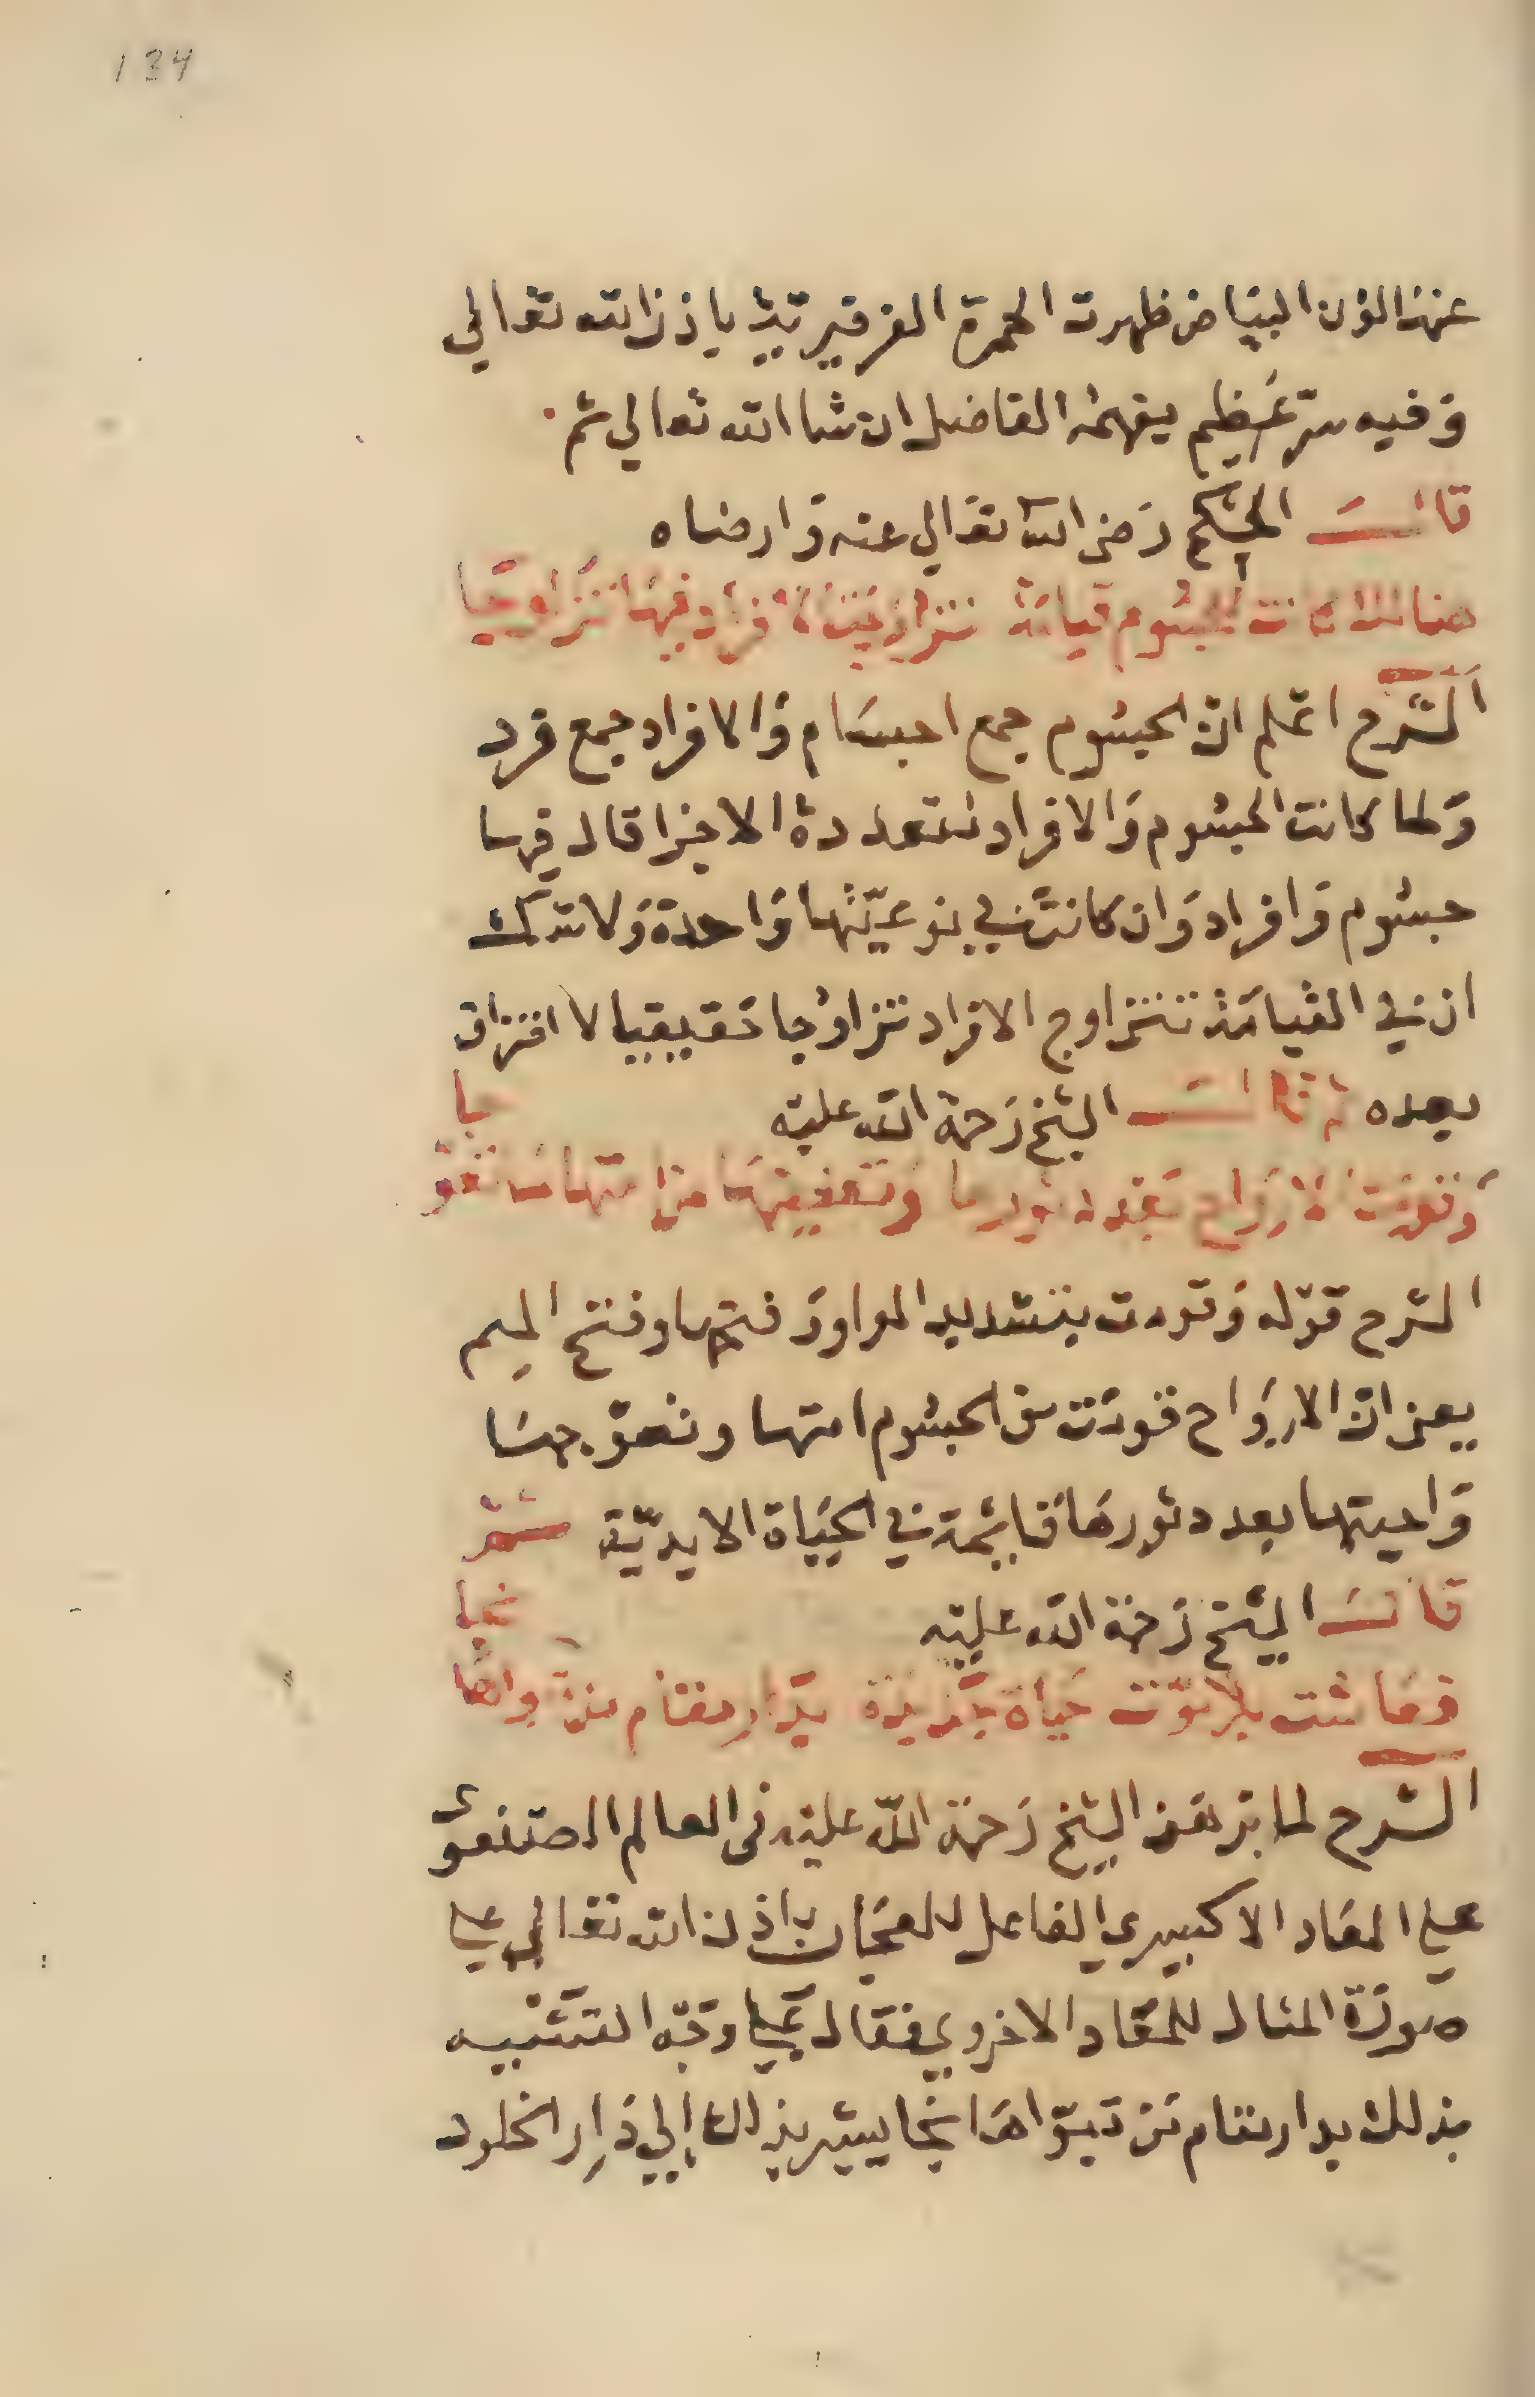 134
عنها لون البياض ظهرت الحمرة الفرفيرية باذن الله تعالي
وفيه سر عظيم يفهمه الفاضل ان شا الله تعالي ثم
قال الحكيم رضى الله تعالي عنه وارضاه
هنالك كانت للجسوم قيامة تزاوجت الافراد فيها تزاوجا
الشرح اعلم ان الجسوم جمع اجسام والافراد جمع فرد
ولما كانت الجسوم والافراد متعددة الاجزا قال فيها
جسوم وافراد وان كانت في نوعيتها واحدة ولا شك
ان في القيامة تتزاوج الافراد تزاوجا حقيقيا لا افتراق
بعده ثم قال الشيخ رحمة الله عليه
وقومت الارواح بعد دثورها
الشرح قوله وقومت بتشديد الواو وفتحها وفتح الميم
يعنى ان الارواح قومت من الجسوم امتها وتعوجها
واحيتها بعد دثورها قايمة في الحياة الابدية ثم
قال الشيخ رحمة الله عليه
فعاشت بلا موت حياة جديدة بدار مقام من تبواها نجا
الشرح لما برهن الشيخ رحمة الله عليه فى العالم الصنعوى
علي المعاد الاكسيري الفاعل للعجاب باذن الله تعالي علي
صورة المثال للمعاد الاخروي فقال علي وجه التشبيه
بذلك بدار مقام من تبواها نجا يشير بذلك إلي دار الخلود